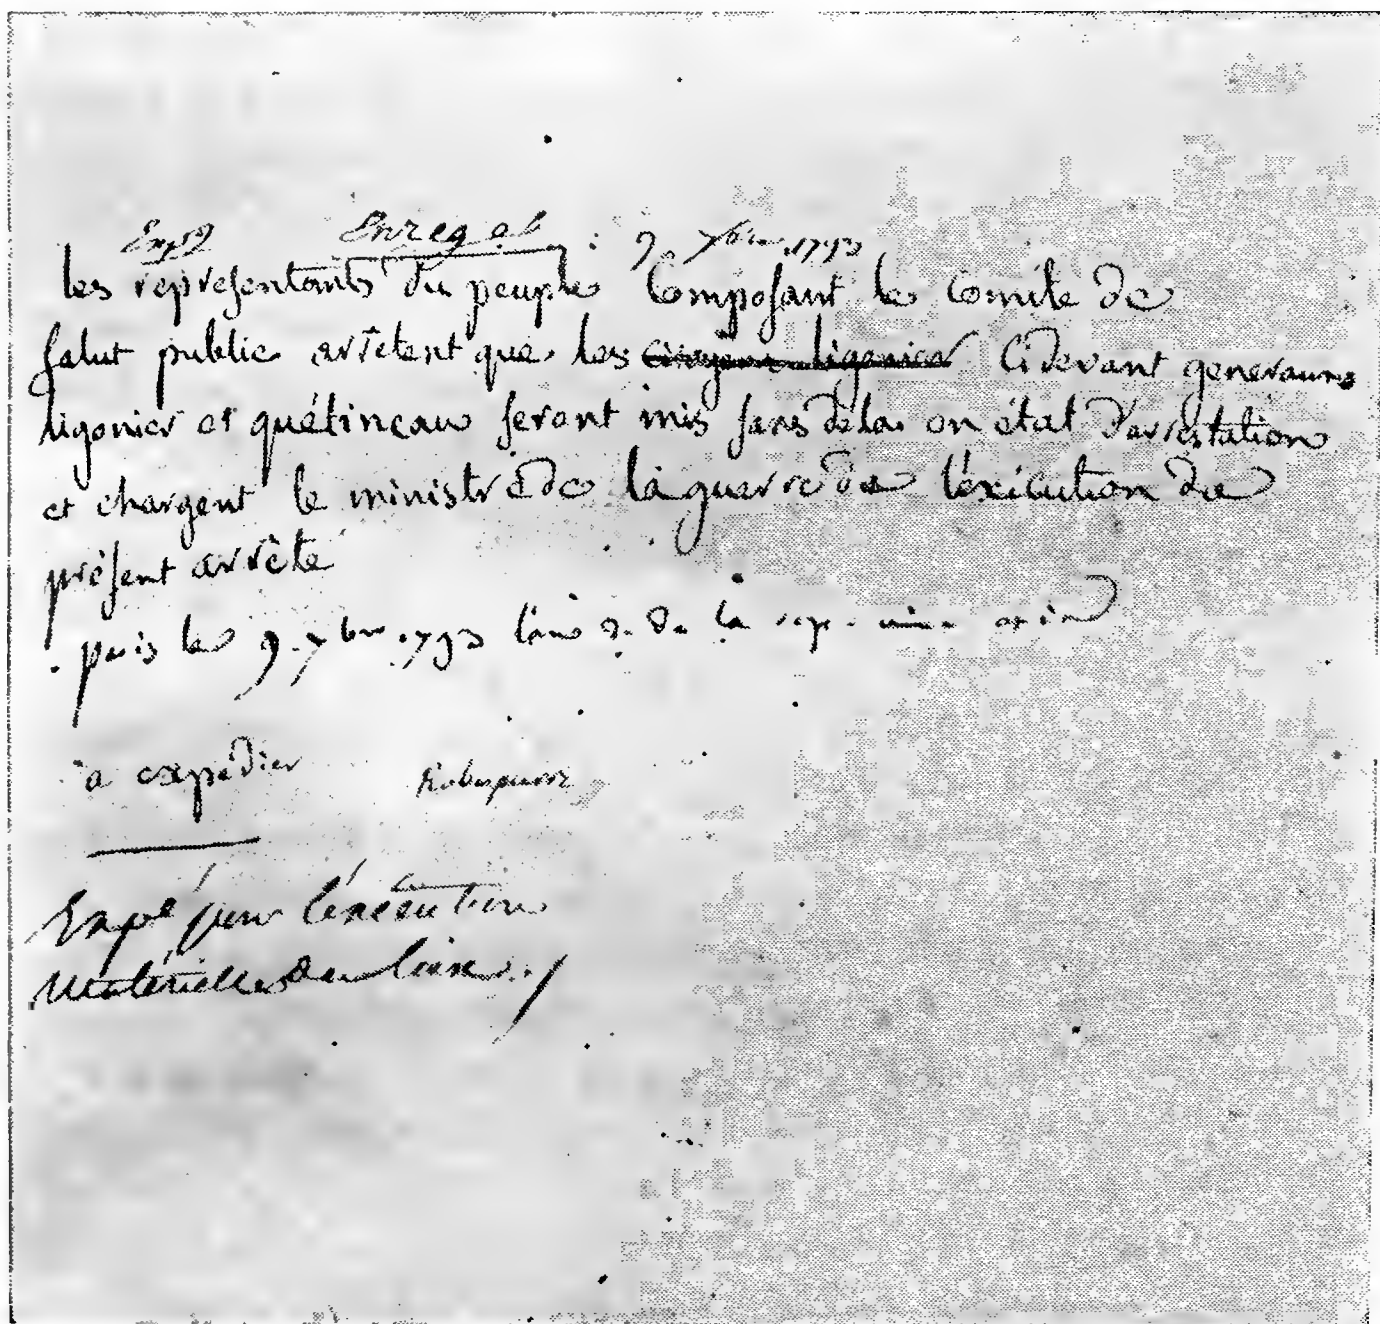 Exp
Enreg : 9 7bre 1793
les representants du peuple Composant le Comite de
salut public arrêtent que les citoyens ligonier Cidevant generaux
ligonier et quétineau seront mis sans delai en état d'arrestation
et chargent le ministre de la guerre de l'exécution du
présent arrêté
paris le 9. 7bre 1793 l'an 2. de la rep. une et ind
a expédier Robespierre
Expé pour l'exécution
Matérielle